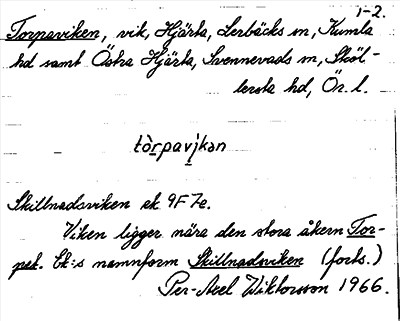 1-2.
Torpaviken, vik, Hjärta, Lerbäcks sn, Kumla
hd samt Östra Hjärta, Svennevads sn, Sköl-
lersta hd, Ör. l.
tòrpavikən
Skillnadsviken ek 9F 7e.
Viken ligger nära den stora åkern Tor-
pet. Ek:s namnform Skillnadsviken (forts.)
Per-Axel Wiktorsson 1966.